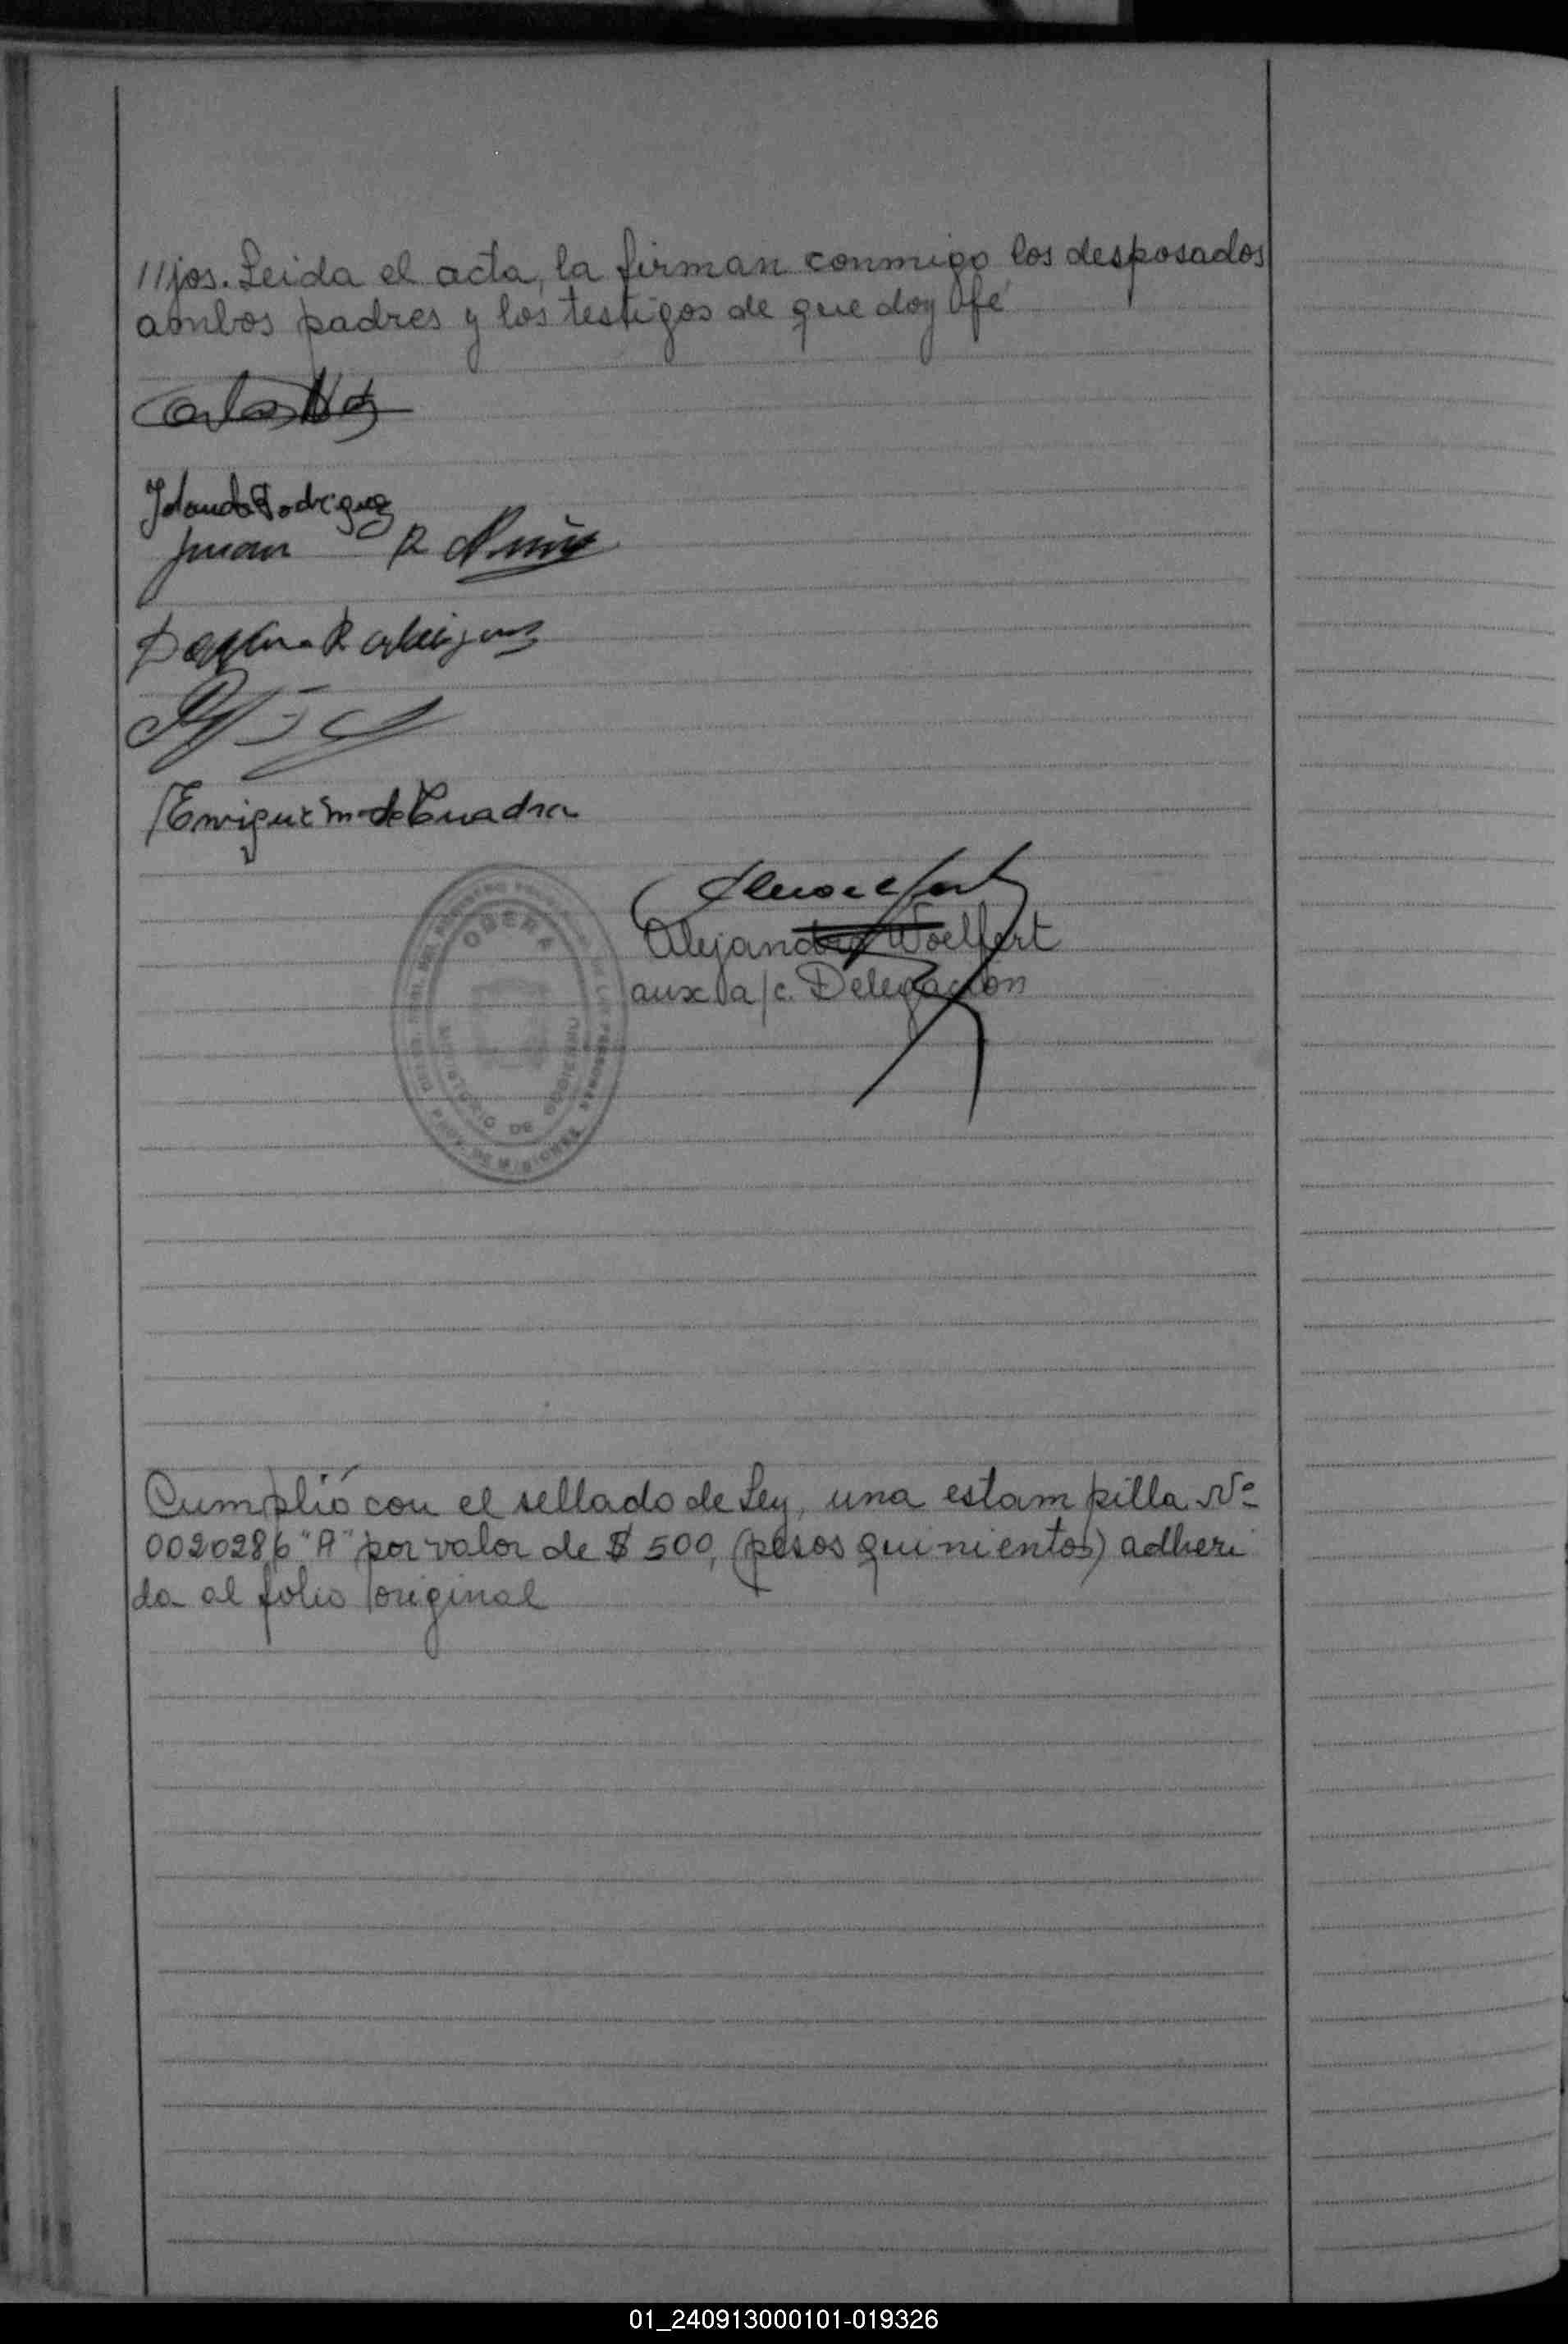 //jos. Leida el acta, la firman conmigo los desposados
ambos padres y los testigos de que doy fé
Carlos
Yolanda Rodriguez
Juan R
Rodriguez
Enrique M. de Cuadra
OBERA
PROV. DE MISIONES
Alejandro Woelfert
aux. a/c. Delegación
Cumplió con el sellado de Ley, una estampilla Nº
0020286 "A" por valor de $ 500, (pesos quinientos) adheri
da al folio original
01_240913000101-019326